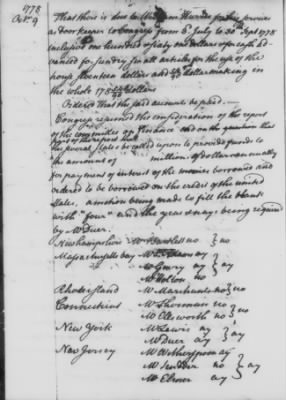 1778
Octr. 9
That there is due to William Hurrie for his services
as Door keeper to Congress from 8th July to 30th Sept 1778
inclusive one hundred & sixty one dollars & for cash ad=
vanced for sundry small articles for the use of the
house seventeen dollars and dollar making in
the whole 178 dollars
Ordered that the said accounts be paid
Congress resumed the consideration of the report
of the committee of Finance and on the question that
the several states be called upon to provide funds to
the amount of million of dollars annually
for payment of interest of the monies borrowed and
ordered to be borrowed on the credit of the united
States, a motion being made to fill the blank
with "four" and the yeas & nays being required
by Mr Duer.
Newhampshire Mr Bartlett no } no
Massachusetts bay Mr S Adams ay
Mr Gerry ay } ay
Mr Holten no
Rhode island Mr Marchant no } no
Connecticut Mr Sherman no
Mr Ellsworth no } no
New York Mr Lewis ay
Mr Duer ay } ay
New Jersey Mr Witherspoon ay
Mr Scudder no } ay
Mr Elmer ay